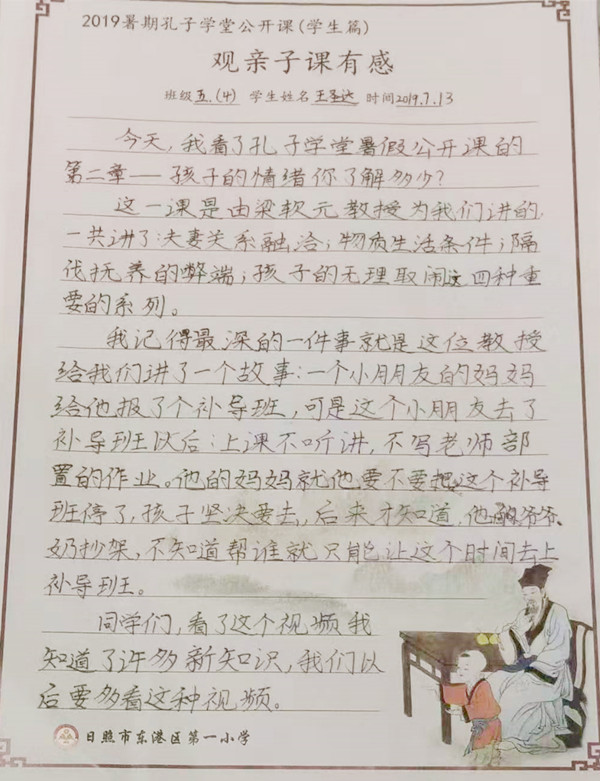 2019暑期孔子学堂公开课(学生篇)
观亲子课有感
班级五.(4) 学生姓名王圣达 时间2019.7.13
今天,我看了孔子学堂暑假公开课的
第二章——孩子的情绪你了解多少?
这一课是由梁软元教授为我们讲的,
一共讲了:夫妻关系融洽;物质生活条件;隔
代抚养的弊端;孩子的无理取闹这四种重
要的系列。
我记得最深的一件事就是这位教授
给我们讲了一个故事:一个小朋友的妈妈
给他报了个补导班,可是这个小朋友去了
补导班以后:上课不听讲,不写老师部
置的作业。他的妈妈就他要不要把这个补导
班停了,孩子坚决要去,后来才知道,他爷爷、
奶抄架,不知道帮谁就只能让这个时间去上
补导班。
同学们,看了这个视频我
知道了许多新知识,我们以
后要多看这种视频。
日照市东港区第一小学